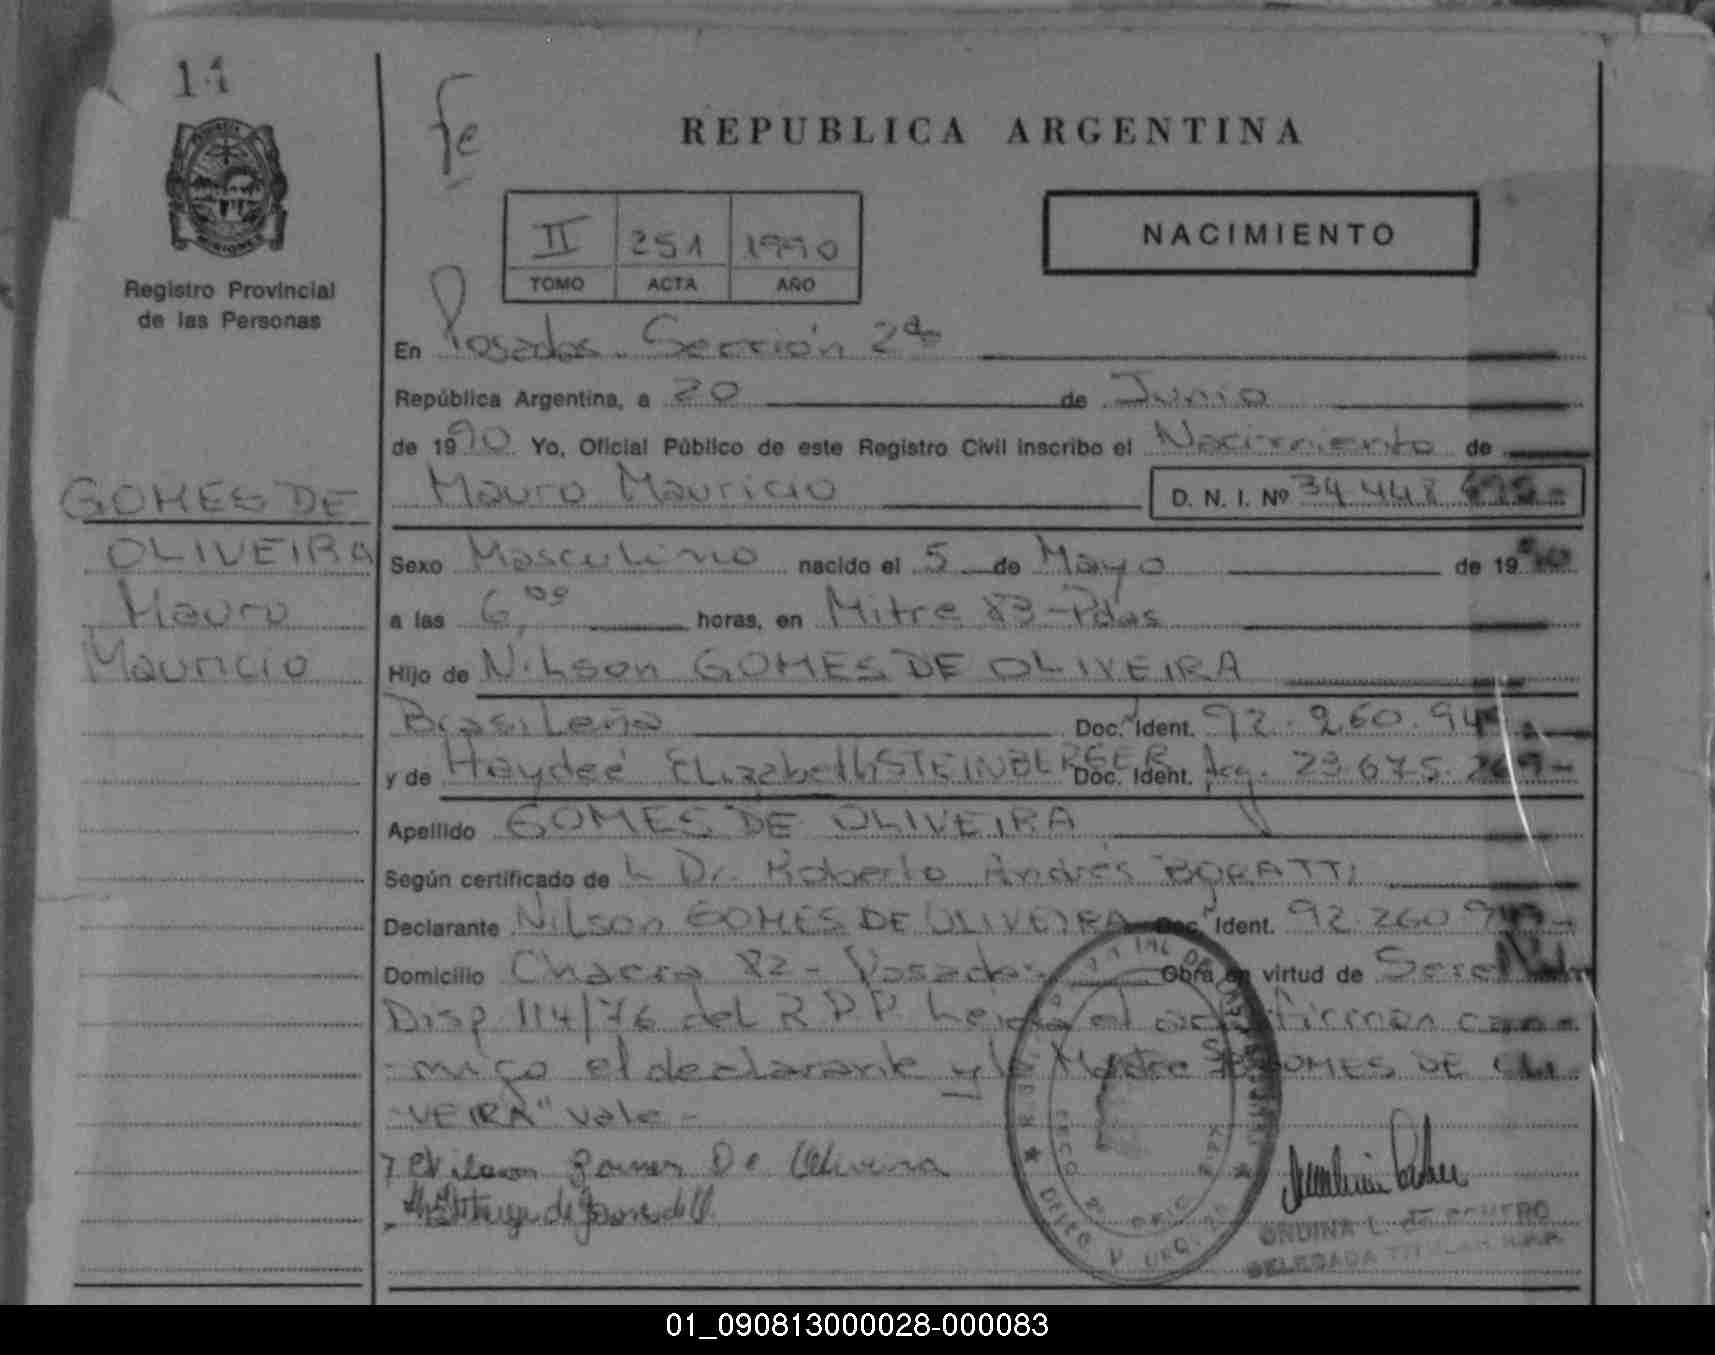 11
fe
REPUBLICA ARGENTINA
II 251 1990
TOMO ACTA AÑO
NACIMIENTO
Registro Provincial
de las Personas
En Posadas - Sección 2da
República Argentina, a 20 de Junio
de 1990 Yo, Oficial Público de este Registro Civil inscribo el Nacimiento de
Mauro Mauricio D. N. I. Nº 34.448
GOMES DE
OLIVEIRA
Mauro
Mauricio
Sexo Masculino nacido el 5 de Mayo de 19
a las 6,00 horas, en Mitre 83 - Pdas
Hijo de Nilson GOMES DE OLIVEIRA
Brasileña Doc. Ident. 92.260.94
y de Haydeé Elizabeth STEINBERGER Doc. Ident. Arg. 23.675.269-
Apellido GOMES DE OLIVEIRA
Según certificado de L Dr. Roberto Andrés
Declarante Nilson GOMES DE OLIVEIRA Doc. Ident. 92.260
Domicilio Chacra 82 - Posadas Obra en virtud de
Disp 114/76 del R P P Leida el acta firman con-
-migo el declarante y la Madre GOMES DE OLI-
-VEIRA" Vale -
Nilson Gomes De Oliveira
ONDINA L. de
DELEGADA TITULAR R.P.P.
01_090813000028-000083